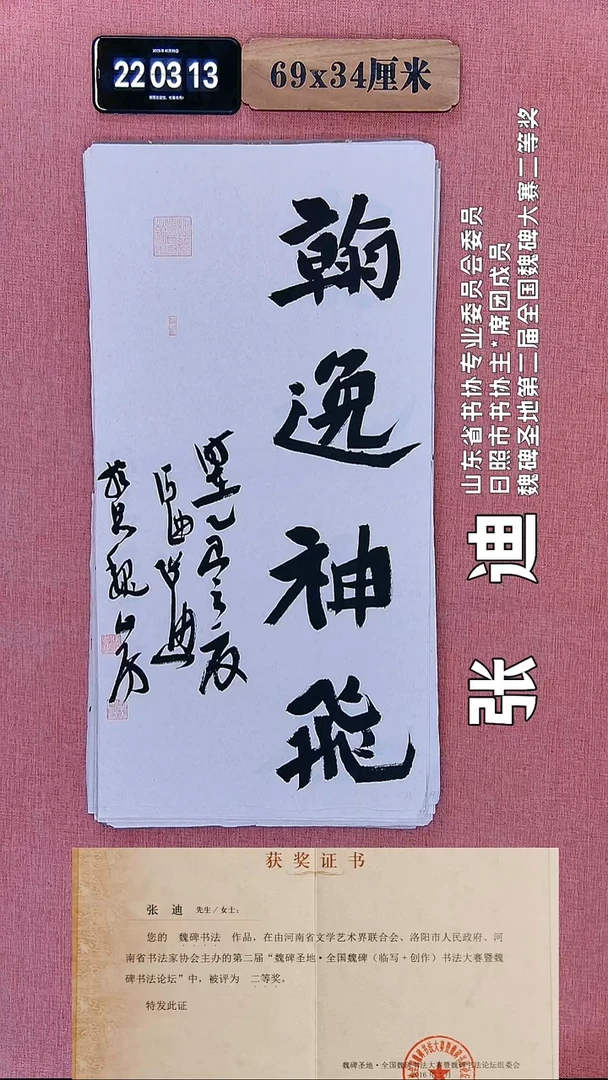 22 03 13
69x34厘米
翰逸神飛
山东省书协专业委员会委员
日照市书协主*席团成员
魏碑圣地第二届全国魏碑大赛二等奖
张 迪
获奖证书
张 迪 先生/女士:
您的 魏碑书法 作品，在由河南省文学艺术界联合会、洛阳市人民政府、河
南省书法家协会主办的第二届“魏碑圣地·全国魏碑（临写+创作）书法大赛暨魏
碑书法论坛”中，被评为 二等奖。
特发此证
魏碑圣地·全国魏碑书法大赛暨魏碑书法论坛组委会